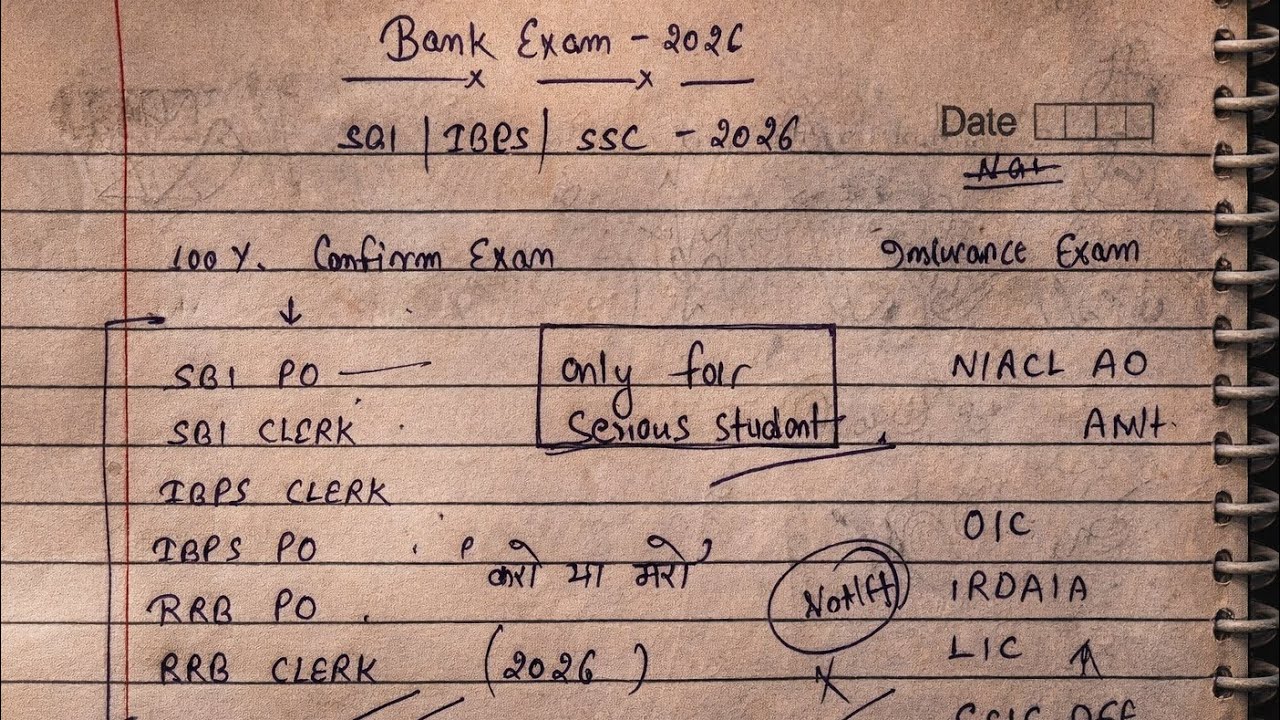 Bank Exam - 2026
SBI | IBPS | SSC - 2026
Date
100 %. Confirm Exam
Insurance Exam
↓
SBI PO
only for
serious student
NIACL AO
SBI CLERK
IBPS CLERK
OIC
IBPS PO
करो या मरो
IRDAIA
RRB PO
LIC
RRB CLERK
(2026)